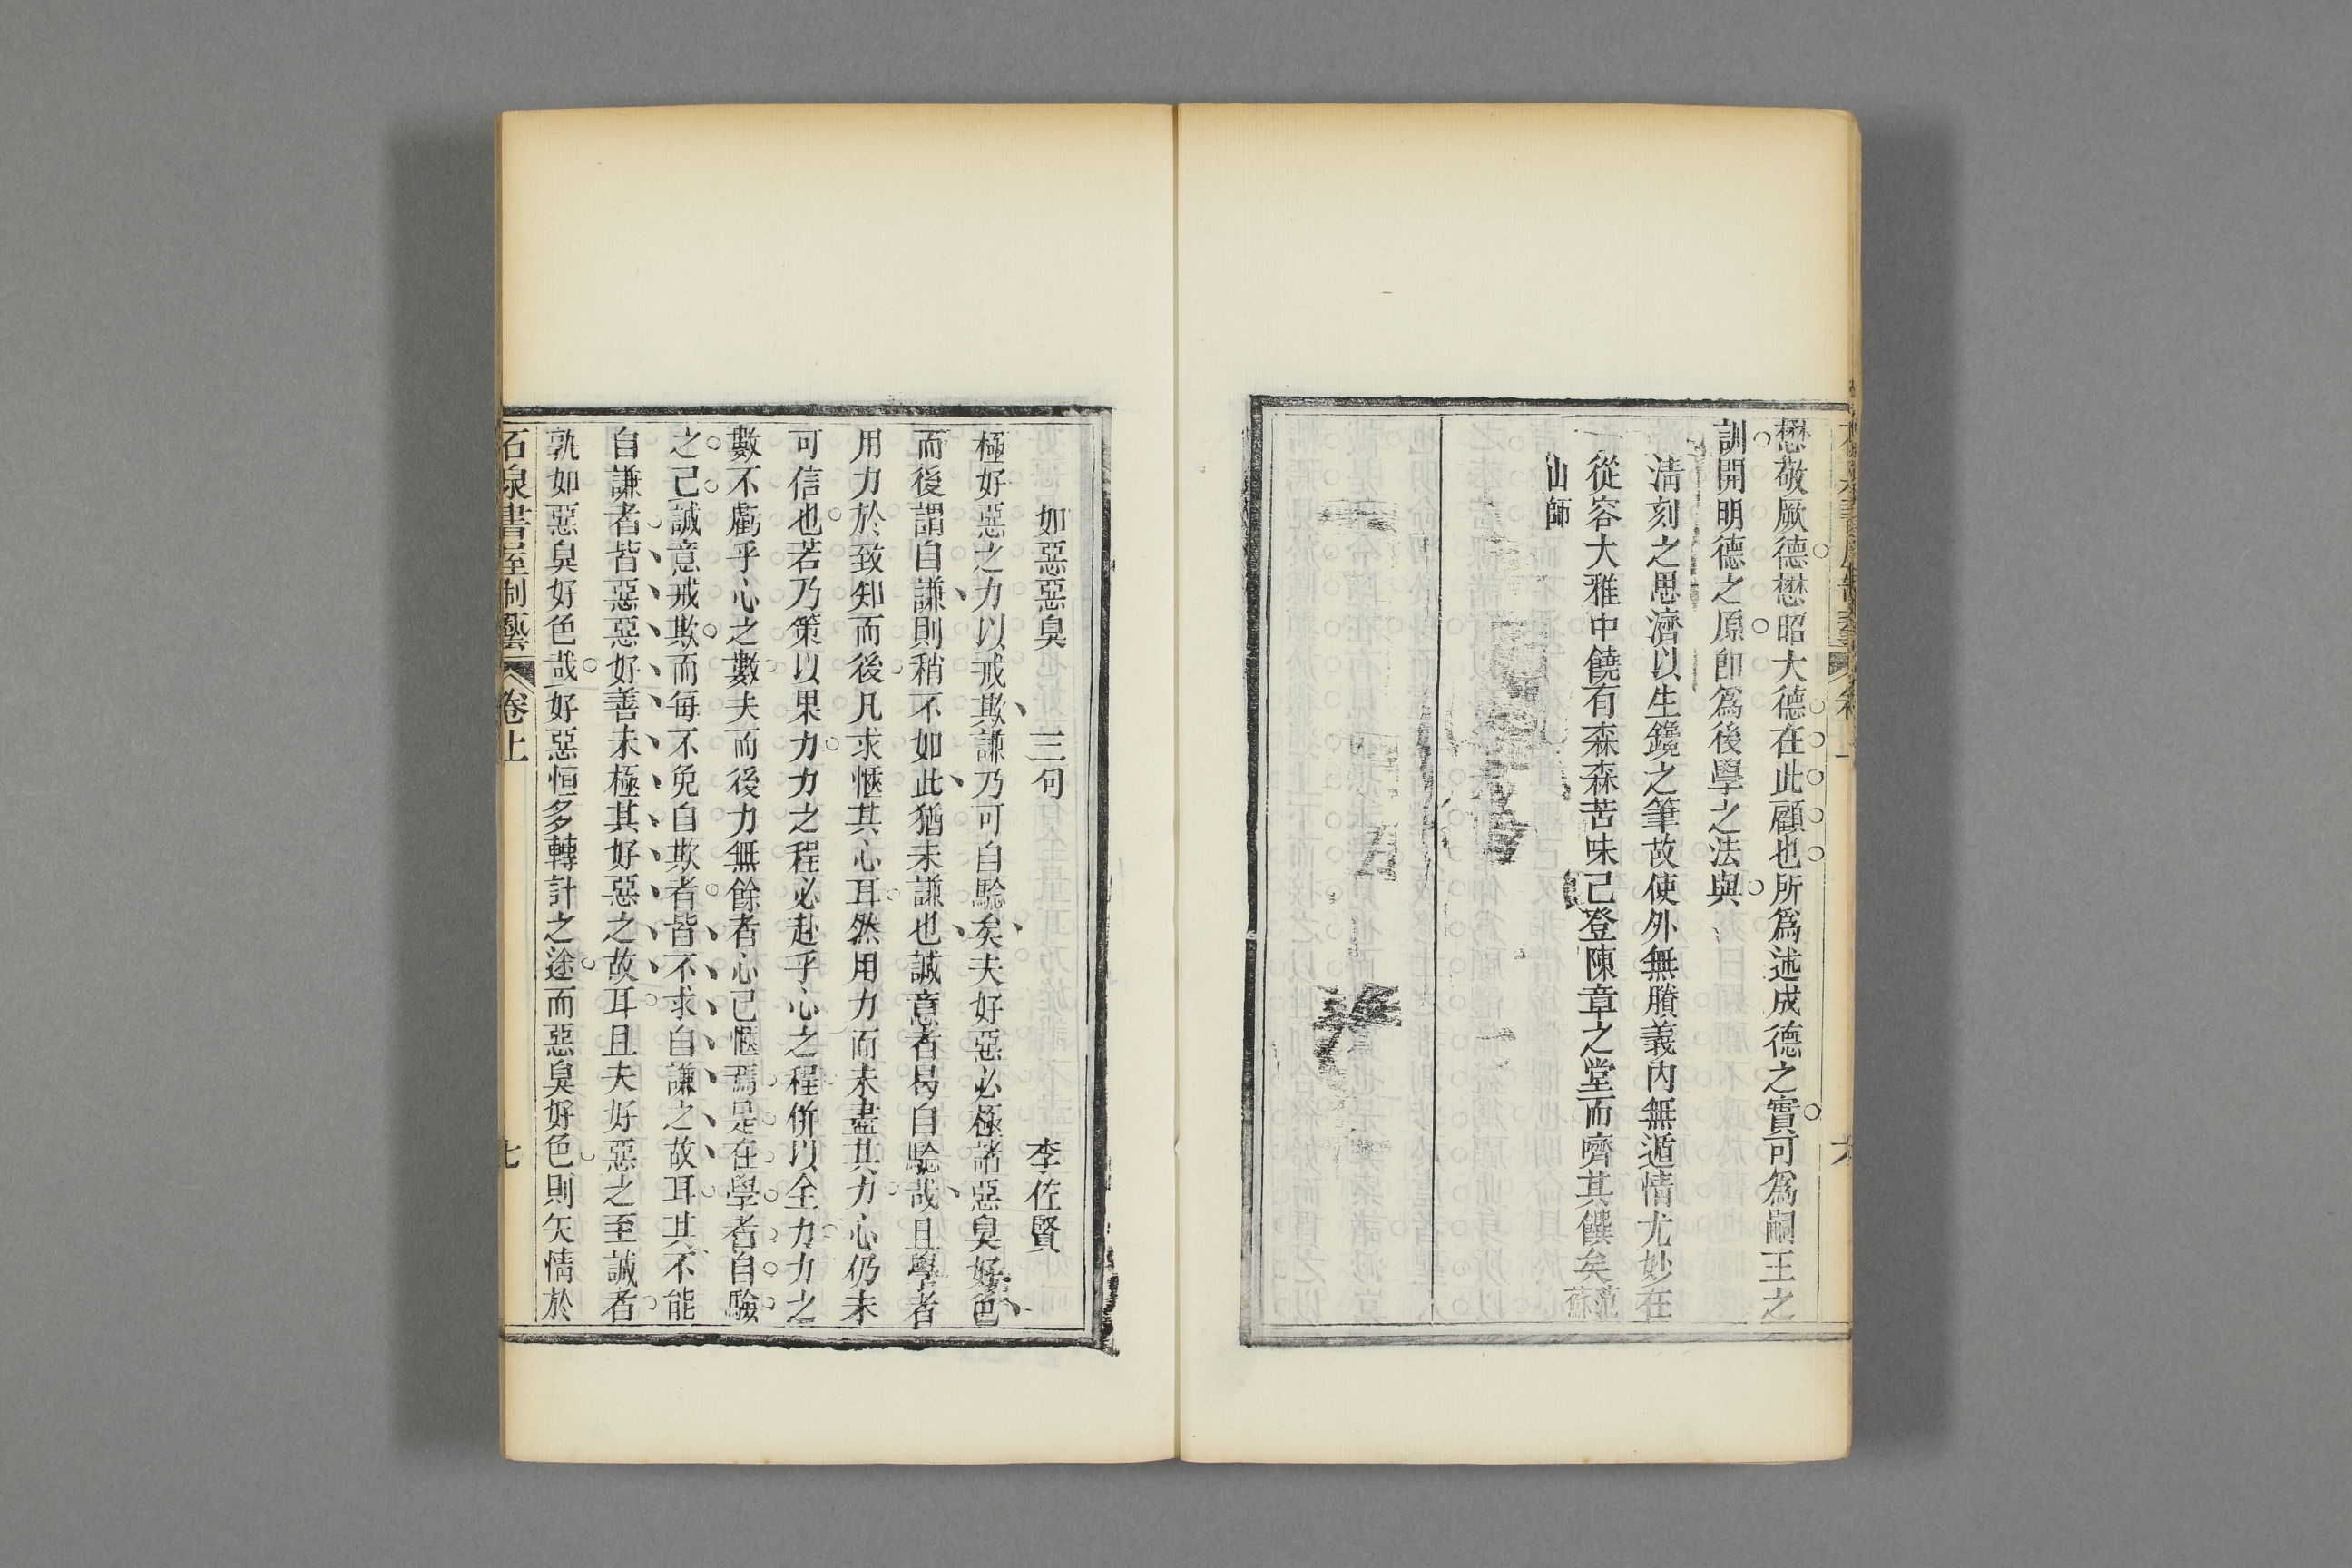 懋敬厥德懋昭大德在此顧也所爲述成德之實可爲嗣王之
訓開明德之原卽爲後學之法與
淸刻之思濟以生鑱之筆故使外無賸義內無遁情尤妙在
從容大雅中饒有森森苦味已登陳章之堂而嚌其饌矣范蘇
山師
如惡惡臭 三句 李佐賢
極好惡之力以戒欺謙乃可自驗矣夫好惡必極諸惡臭好色
而後謂自謙則稍不如此猶未謙也誠意者曷自驗哉且學者
用力於致知而後凡求愜其心耳然用力而未盡其力心仍未
可信也若乃策以果力力之程必赴乎心之程併以全力力之
數不虧乎心之數夫而後力無餘者心已愜焉足在學者自驗
之已誠意戒欺而每不免自欺者皆不求自謙之故耳其不能
自謙者皆惡惡好善未極其好惡之故耳且夫好惡之至誠者
孰如惡臭好色哉好惡恒多轉計之途而惡臭好色則矢情於
石泉書屋制藝 卷上 七